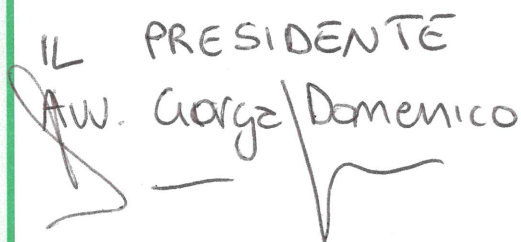 IL PRESIDENTE
Avv. Giorgz Domenico